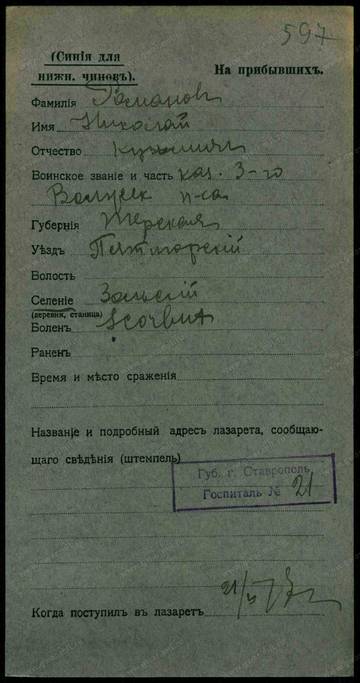 597
(Синія для
нижн. чиновъ).
На прибывшихъ.
Фамилія Романовъ
Имя Николай
Отчество Кузьмичъ
Воинское званіе и часть каз. 3-го
Волгск п-ка
Губернія Терская
Уѣздъ Пятигорскій
Волость
Селеніе Зольской
(деревня, станица)
Боленъ Scorbut
Раненъ
Время и мѣсто сраженія
Названіе и подробный адресъ лазарета, сообщаю-
щаго свѣдѣнія (штемпель)
Губ. г. Ставрополь
Госпиталь № 21
Когда поступилъ въ лазаретъ 21/